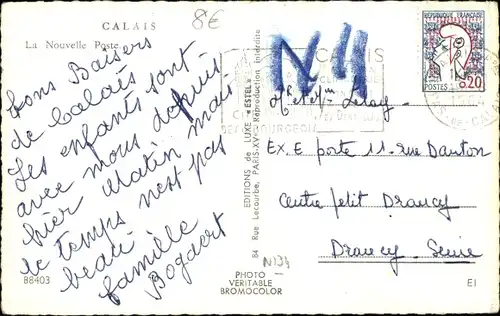 CALAIS
La Nouvelle Poste
8€
Bons Baisers
de Calais
Les enfants sont
avec nous depuis
hier Matin mais
le temps n'est pas
beau
famille
Bogaert
B8403
PHOTO
VERITABLE
BROMOCOLOR
EDITIONS de LUXE «ESTEL»
84 Rue Lecourbe, PARIS-XV
Reproduction Interdite
N 4
CALAIS
REPUBLIQUE FRANÇAISE
POSTES 0,20
Mr et Mme Leloy
Ex. E porte 11 - rue Danton
Centre petit Drancy
Drancy - Seine
N134
EI